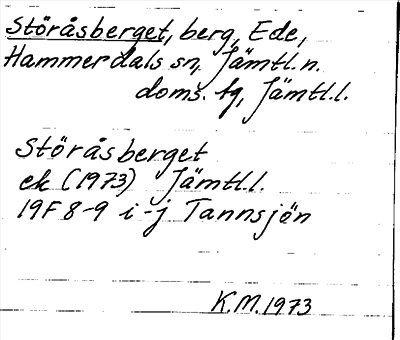 Störåsberget, berg, Ede,
Hammerdals sn, Jämtl. n.
doms. fg, Jämtl. l.
Störåsberget
ek (1973) Jämtl. l.
19F 8-9 i-j Tannsjön
K.M. 1973